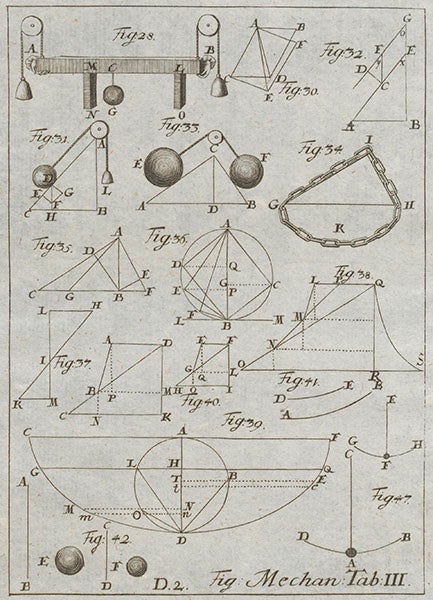 Fig: 28.
A
B
M
C
L
N
G
O
A
B
C
D
E
F
Fig: 30.
G
Fig: 32.
F
E
D
C
A
B
Fig: 31.
A
D
E
G
F
L
C
H
B
Fig: 33.
E
C
F
A
D
B
Fig: 34
I
G
H
K
Fig: 35.
A
D
E
C
G
B
F
Fig: 36.
A
D
Q
G
C
E
P
L
F
B
M
Fig: 38.
L
Q
M
N
O
R
S
L
H
I
Fig: 37.
K
M
A
D
B
P
M
C
N
K
E
F
G
Q
L
H
O
I
Fig: 40.
Fig: 41.
D
E
A
B
G
H
F
Fig: 39.
C
A
F
G
L
H
B
Q
T
t
E
e
M
N
m
n
O
D
A
B
C
D
Fig: 42.
E
F
Fig: 47.
C
D
B
A
D. 2.
Fig: Mechan: Tab. III.